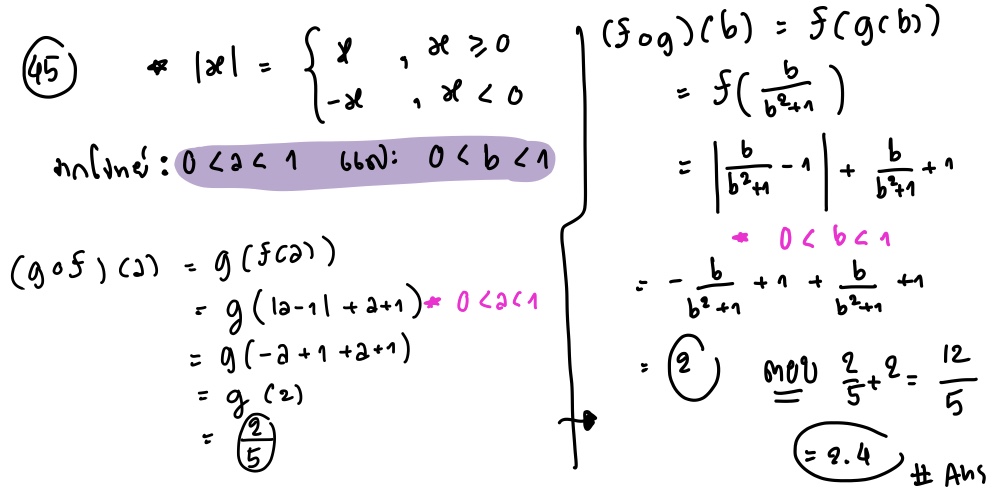 45 * |x| = { x , x ≥ 0
-x , x < 0
จากโจทย์ : 0 < a < 1 และ 0 < b < 1
(gof)(a) = g(f(a))
= g(|a-1| + a+1) * 0 < a < 1
= g(-a+1+a+1)
= g(2)
= 2/5
(fog)(b) = f(g(b))
= f(b/(b²+1))
= |b/(b²+1) - 1| + b/(b²+1) + 1
* 0 < b < 1
= - b/(b²+1) + 1 + b/(b²+1) + 1
= 2 ตอบ 2/5 + 2 = 12/5
= 2.4 # Ans